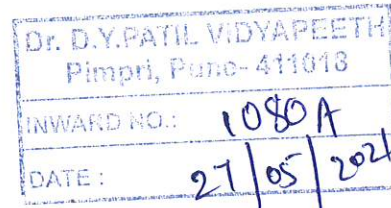 Dr. D.Y.PATIL VIDYAPEETH
Pimpri, Pune-411018
INWARD NO.: 1080A
DATE: 27/05/2021